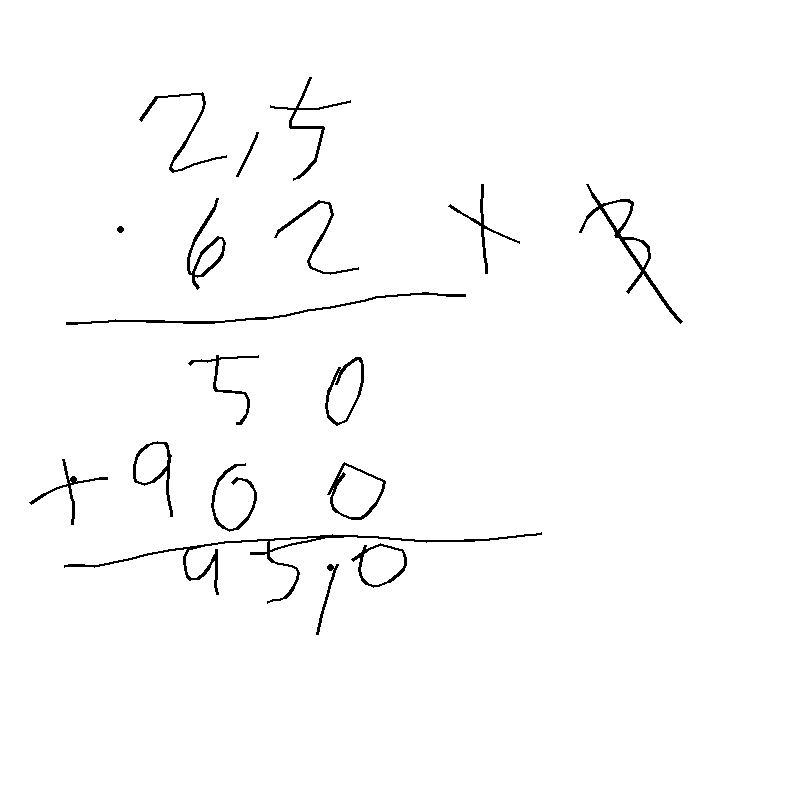 2,5
· 62 +
50
+ 900
95,0